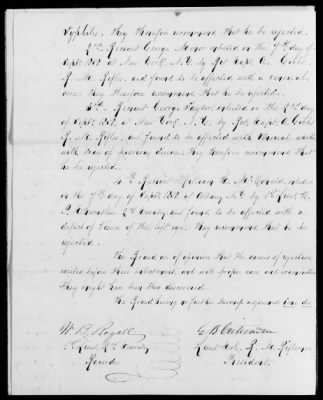 Syphilis. They therefore recommend that he be rejected.
2nd. Recruit George Manor enlisted on the 7th day of
Sept. 1852 at New York N.Y. by Bvt Capt. A. Gibbs
R. M. Rifles, and found to be affected with a venereal
sore, they therefore recommend that he be rejected.
3rd. Recruit George Taylor, enlisted on the 2nd day
of Sept. 1852, at New York N.Y. by Bvt. Capt. A. Gibbs
R. M. Rifles, and found to be affected with venereal warts
with scars of previous disease, they therefore recommend that
he be rejected.
4th Recruit William McDonald, enlisted
on the 7th day of Sept. 1852 at Albany N.Y. by 1st Lieut.
2nd Cavalry and found to be affected with a
defect of vision of the left eye. They recommend that he be
rejected.
The Board are of opinion that the causes of rejection
existed before their enlistment, and with proper care and examination
they might have been then discovered.
The Board having no further business adjourned sine die
W. B. Royall
1st Lieut. 2d Cavalry
Recorder
G. B. Crittenden
Lieut. Col. R. M. Riflemen
President.